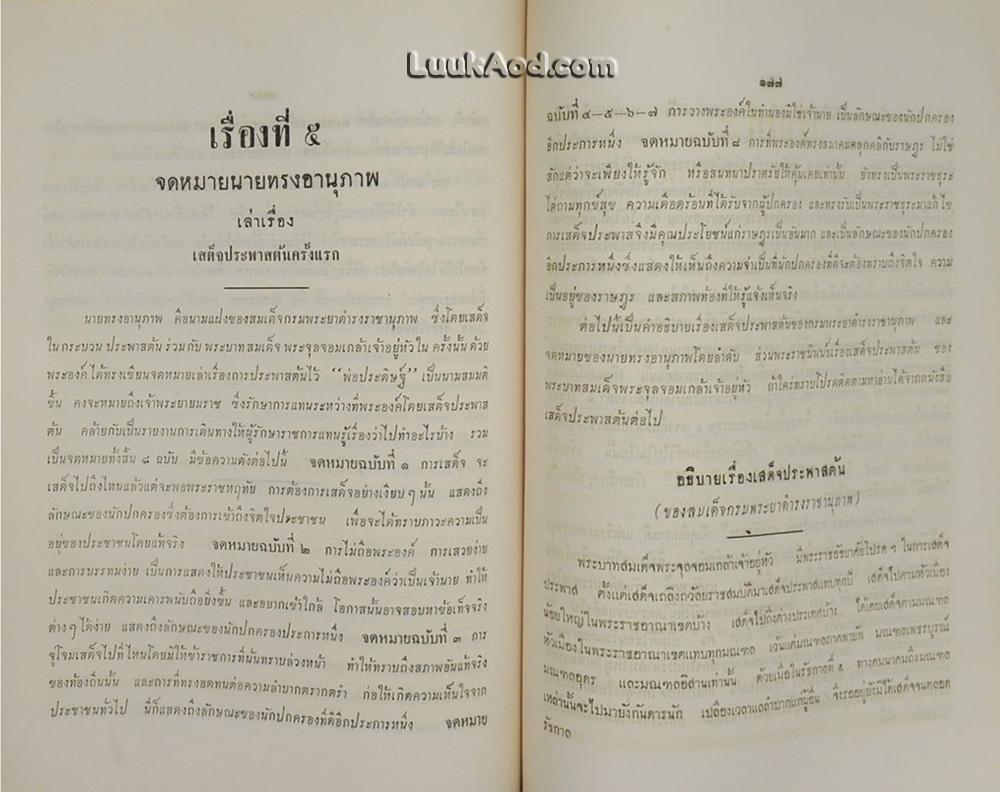 LuukAod.com
เรื่องที่ ๕
จดหมายนายทรงอานุภาพ
เล่าเรื่อง
เสด็จประพาสต้นครั้งแรก
นายทรงอานุภาพ คือนามแฝงของสมเด็จกรมพระยาดำรงราชานุภาพ ซึ่งโดยเสด็จ
ในกระบวน ประพาสต้น ร่วมกับ พระบาทสมเด็จ พระจุลจอมเกล้าเจ้าอยู่หัวใน ครั้งนั้น ด้วย
พระองค์ ได้ทรงเขียนจดหมายเล่าเรื่องการประพาสต้นไว้ “พ่อประดิษฐ์” เป็นนามสมมติ
ขึ้น คงจะหมายถึงเจ้าพระยายมราช ซึ่งรักษาการแทนระหว่างที่พระองค์โดยเสด็จประพาส
ต้น คล้ายกับเป็นรายงานการเดินทางให้ผู้รักษาราชการแทนรู้เรื่องว่าไปทำอะไรบ้าง รวม
เป็นจดหมายทั้งสิ้น ๘ ฉบับ มีข้อความดังต่อไปนี้ จดหมายฉบับที่ ๑ การเสด็จ จะ
เสด็จไปถึงไหนแล้วแต่จะพอพระราชหฤทัย การต้องการเสด็จอย่างเงียบๆ นั้น แสดงถึง
ลักษณะของนักปกครองซึ่งต้องการเข้าถึงจิตใจประชาชน เพื่อจะได้ทราบภาวะความเป็น
อยู่ของประชาชนโดยแท้จริง จดหมายฉบับที่ ๒ การไม่ถือพระองค์ การเสวยง่าย
และการบรรทมง่าย เป็นการแสดงให้ประชาชนเห็นความไม่ถือพระองค์ว่าเป็นเจ้านาย ทำให้
ประชาชนเกิดความเคารพนับถือยิ่งขึ้น และอยากเข้าใกล้ โอกาสนั้นอาจสอบหาข้อเท็จจริง
ต่างๆ ได้ง่าย แสดงถึงลักษณะของนักปกครองประการหนึ่ง จดหมายฉบับที่ ๓ การ
จู่โจมเสด็จไปที่ไหนโดยมิให้ข้าราชการที่นั่นทราบล่วงหน้า ทำให้ทราบถึงสภาพอันแท้จริง
ของท้องถิ่นนั้น และการที่ทรงอดทนต่อความลำบากตรากตรำ ก่อให้เกิดความเห็นใจจาก
ประชาชนทั่วไป นี่ก็แสดงถึงลักษณะของนักปกครองที่ดีอีกประการหนึ่ง จดหมาย
๑๗๗
ฉบับที่ ๔—๕—๖—๗ การวางพระองค์ในทำนองมิใช่เจ้านาย เป็นลักษณะของนักปกครอง
อีกประการหนึ่ง จดหมายฉบับที่ ๘ การที่พระองค์ทรงสมาคมคลุกคลีกับราษฎร ไม่ใช่
สักแต่ว่าจะเพียงให้รู้จัก หรือสนทนาปราศรัยให้คุ้นเคยเท่านั้น ยังทรงเป็นพระราชธุระ
ไต่ถามทุกข์สุข ความเดือดร้อนที่ได้รับจากผู้ปกครอง และทรงรับเป็นพระราชธุระมาแก้ไข
การเสด็จประพาสจึงมีคุณประโยชน์แก่ราษฎรเป็นอันมาก และเป็นลักษณะของนักปกครอง
อีกประการหนึ่งซึ่งแสดงให้เห็นถึงความจำเป็นที่นักปกครองที่ดีจะต้องทราบถึงจิตใจ ความ
เป็นอยู่ของราษฎร และสภาพท้องที่ให้รู้แจ้งเห็นจริง
ต่อไปนี้เป็นคำอธิบายเรื่องเสด็จประพาสต้นของกรมพระยาดำรงราชานุภาพ และ
จดหมายของนายทรงอานุภาพโดยลำดับ ส่วนพระราชนิพนธ์เรื่องเสด็จประพาสต้น ของ
พระบาทสมเด็จพระจุลจอมเกล้าเจ้าอยู่หัว ถ้าใครทราบโปรดติดตามหาอ่านได้จากหนังสือ
เสด็จประพาสต้นต่อไป
อธิบายเรื่องเสด็จประพาสต้น
(ของสมเด็จกรมพระยาดำรงราชานุภาพ)
พระบาทสมเด็จพระจุลจอมเกล้าเจ้าอยู่หัว มีพระราชอัธยาศัยโปรด ๆ ในการเสด็จ
ประพาส ตั้งแต่เสด็จเถลิงถวัลยราชสมบัติมาเสด็จประพาสแทบทุกปี เสด็จไปตามหัวเมือง
น้อยใหญ่ในพระราชอาณาเขตบ้าง เสด็จไปถึงต่างประเทศบ้าง ได้เคยเสด็จตามมณฑล
หัวเมืองในพระราชอาณาเขตแทบทุกมณฑล เว้นแต่มณฑลภาคพายัพ มณฑลเพชรบูรณ์
มณฑลอุดร และมณฑลอีสานเท่านั้น ด้วยเมื่อในรัชกาลที่ ๕ ทางคมนาคมถึงมณฑล
เหล่านั้นจะไปมายังกันดารนัก เปลืองเวลาแลลำบากแก่ผู้อื่น จึงรออยู่ยังมิได้เสด็จจนตลอด
รัชกาล